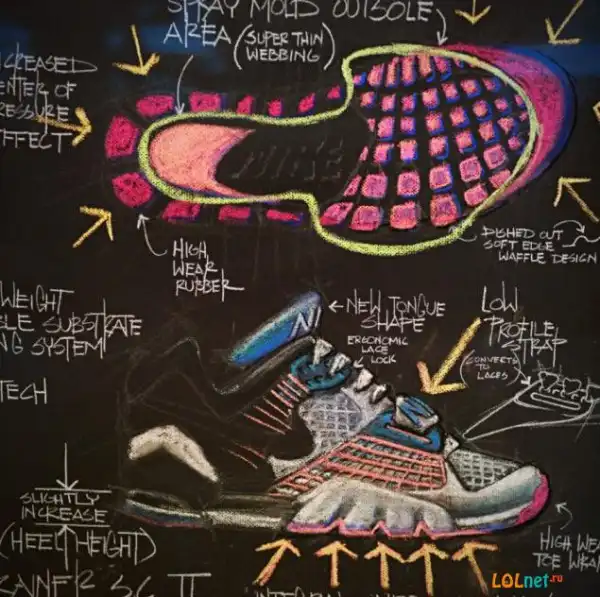 SPRAY MOLD OUTSOLE
AREA (SUPER THIN
WEBBING)
CREASED
ENTER OF
RESSURE
FFECT
NIKE
HIGH
WEAR
RUBBER
DISHED OUT
SOFT EDGE
WAFFLE DESIGN
WEIGHT
LE SUBSTRATE
NG SYSTEM
TECH
NEW TONGUE
SHAPE
ERGONOMIC
LACE
LOCK
LOW
PROFILE
STRAP
(CONVERTS
TO
LACES)
SLIGHTLY
INCREASE
(HEEL HEIGHT)
HIGH WEA
TOE WRAP
RAINER SC II
LOLnet.ru